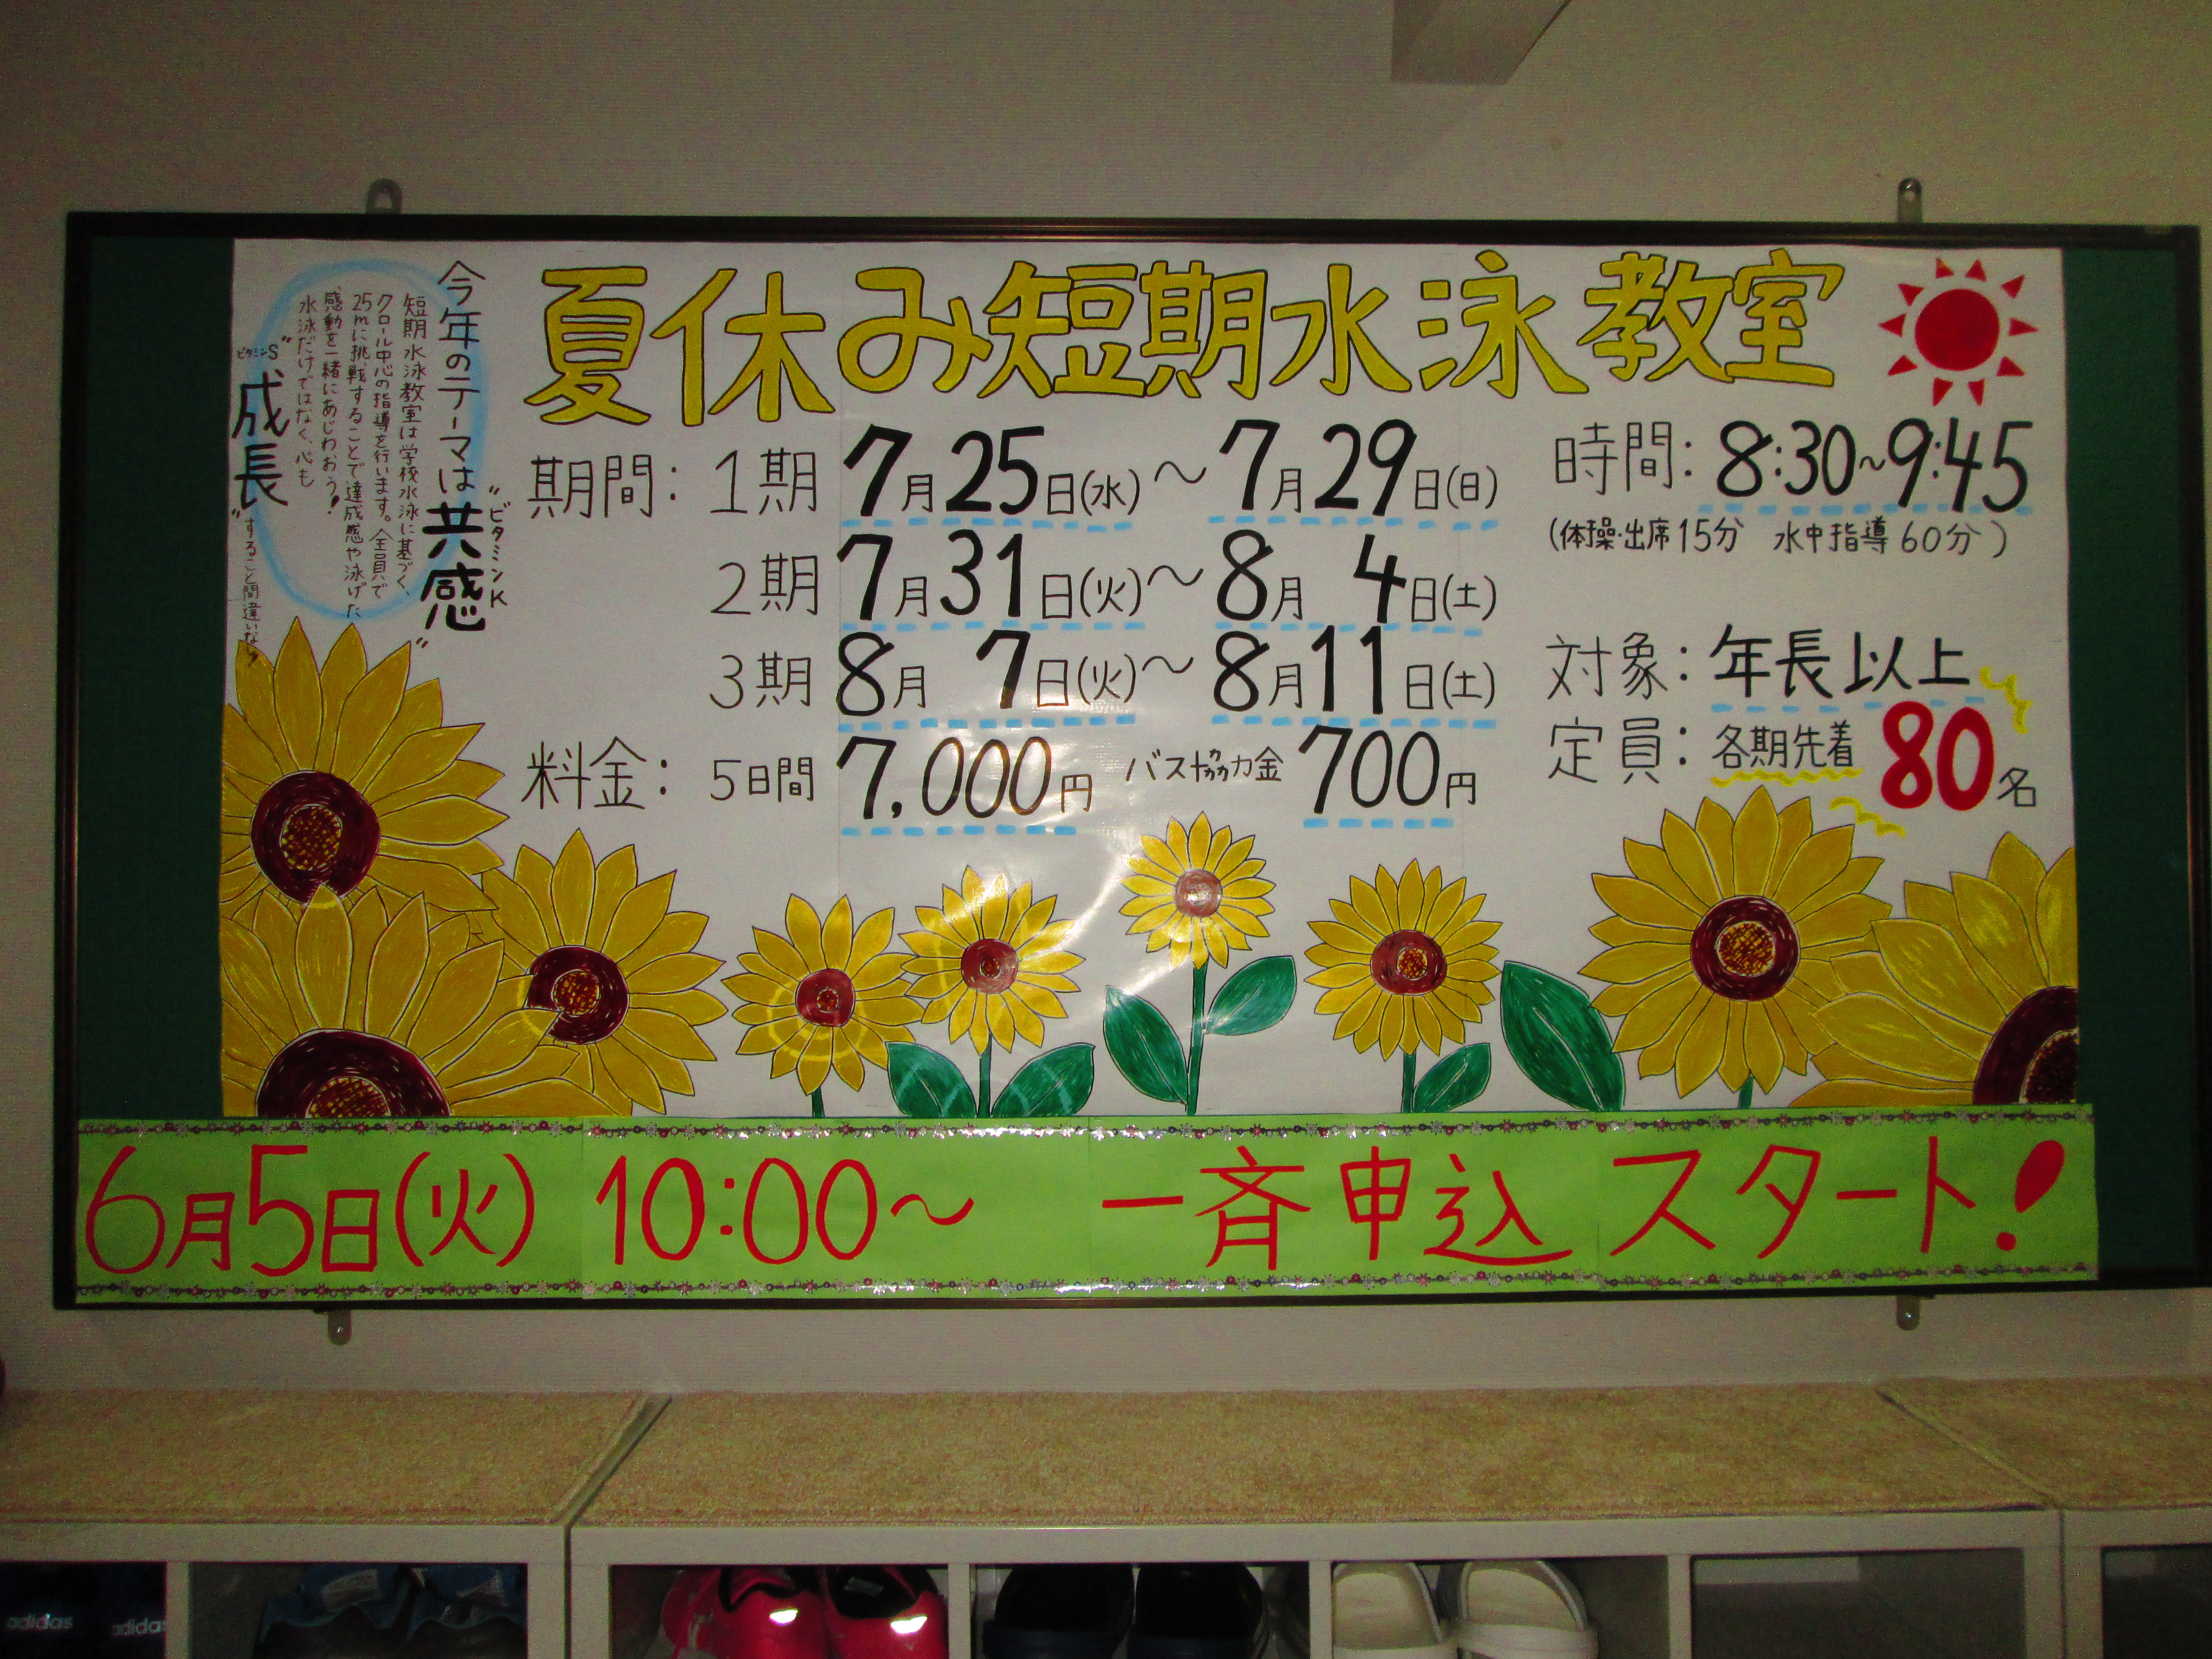 夏休み短期水泳教室
期間: 1期 7月25日(水)〜7月29日(日)
2期 7月31日(火)〜8月4日(土)
3期 8月7日(火)〜8月11日(土)
料金: 5日間 7,000円 バス協力金 700円
時間: 8:30〜9:45
(体操・出席15分 水中指導60分)
対象: 年長以上
定員: 各期先着80名
今年のテーマは"共感"
ビタミンK
短期水泳教室は学校水泳に基づく、
クロール中心の指導を行います。全員で
25mに挑戦することで達成感や泳げた
感動を一緒にあじわおう!
水泳だけではなく、心も
ビタミンS
"成長"すること間違いなし
6月5日(火) 10:00〜 一斉申込スタート!
adidas
adidas